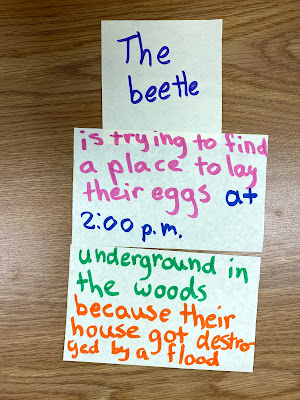 The
beetle
is trying to find
a place to lay
their eggs at
2:00 p.m.
underground in
the woods
because their
house got destro
yed by a fload